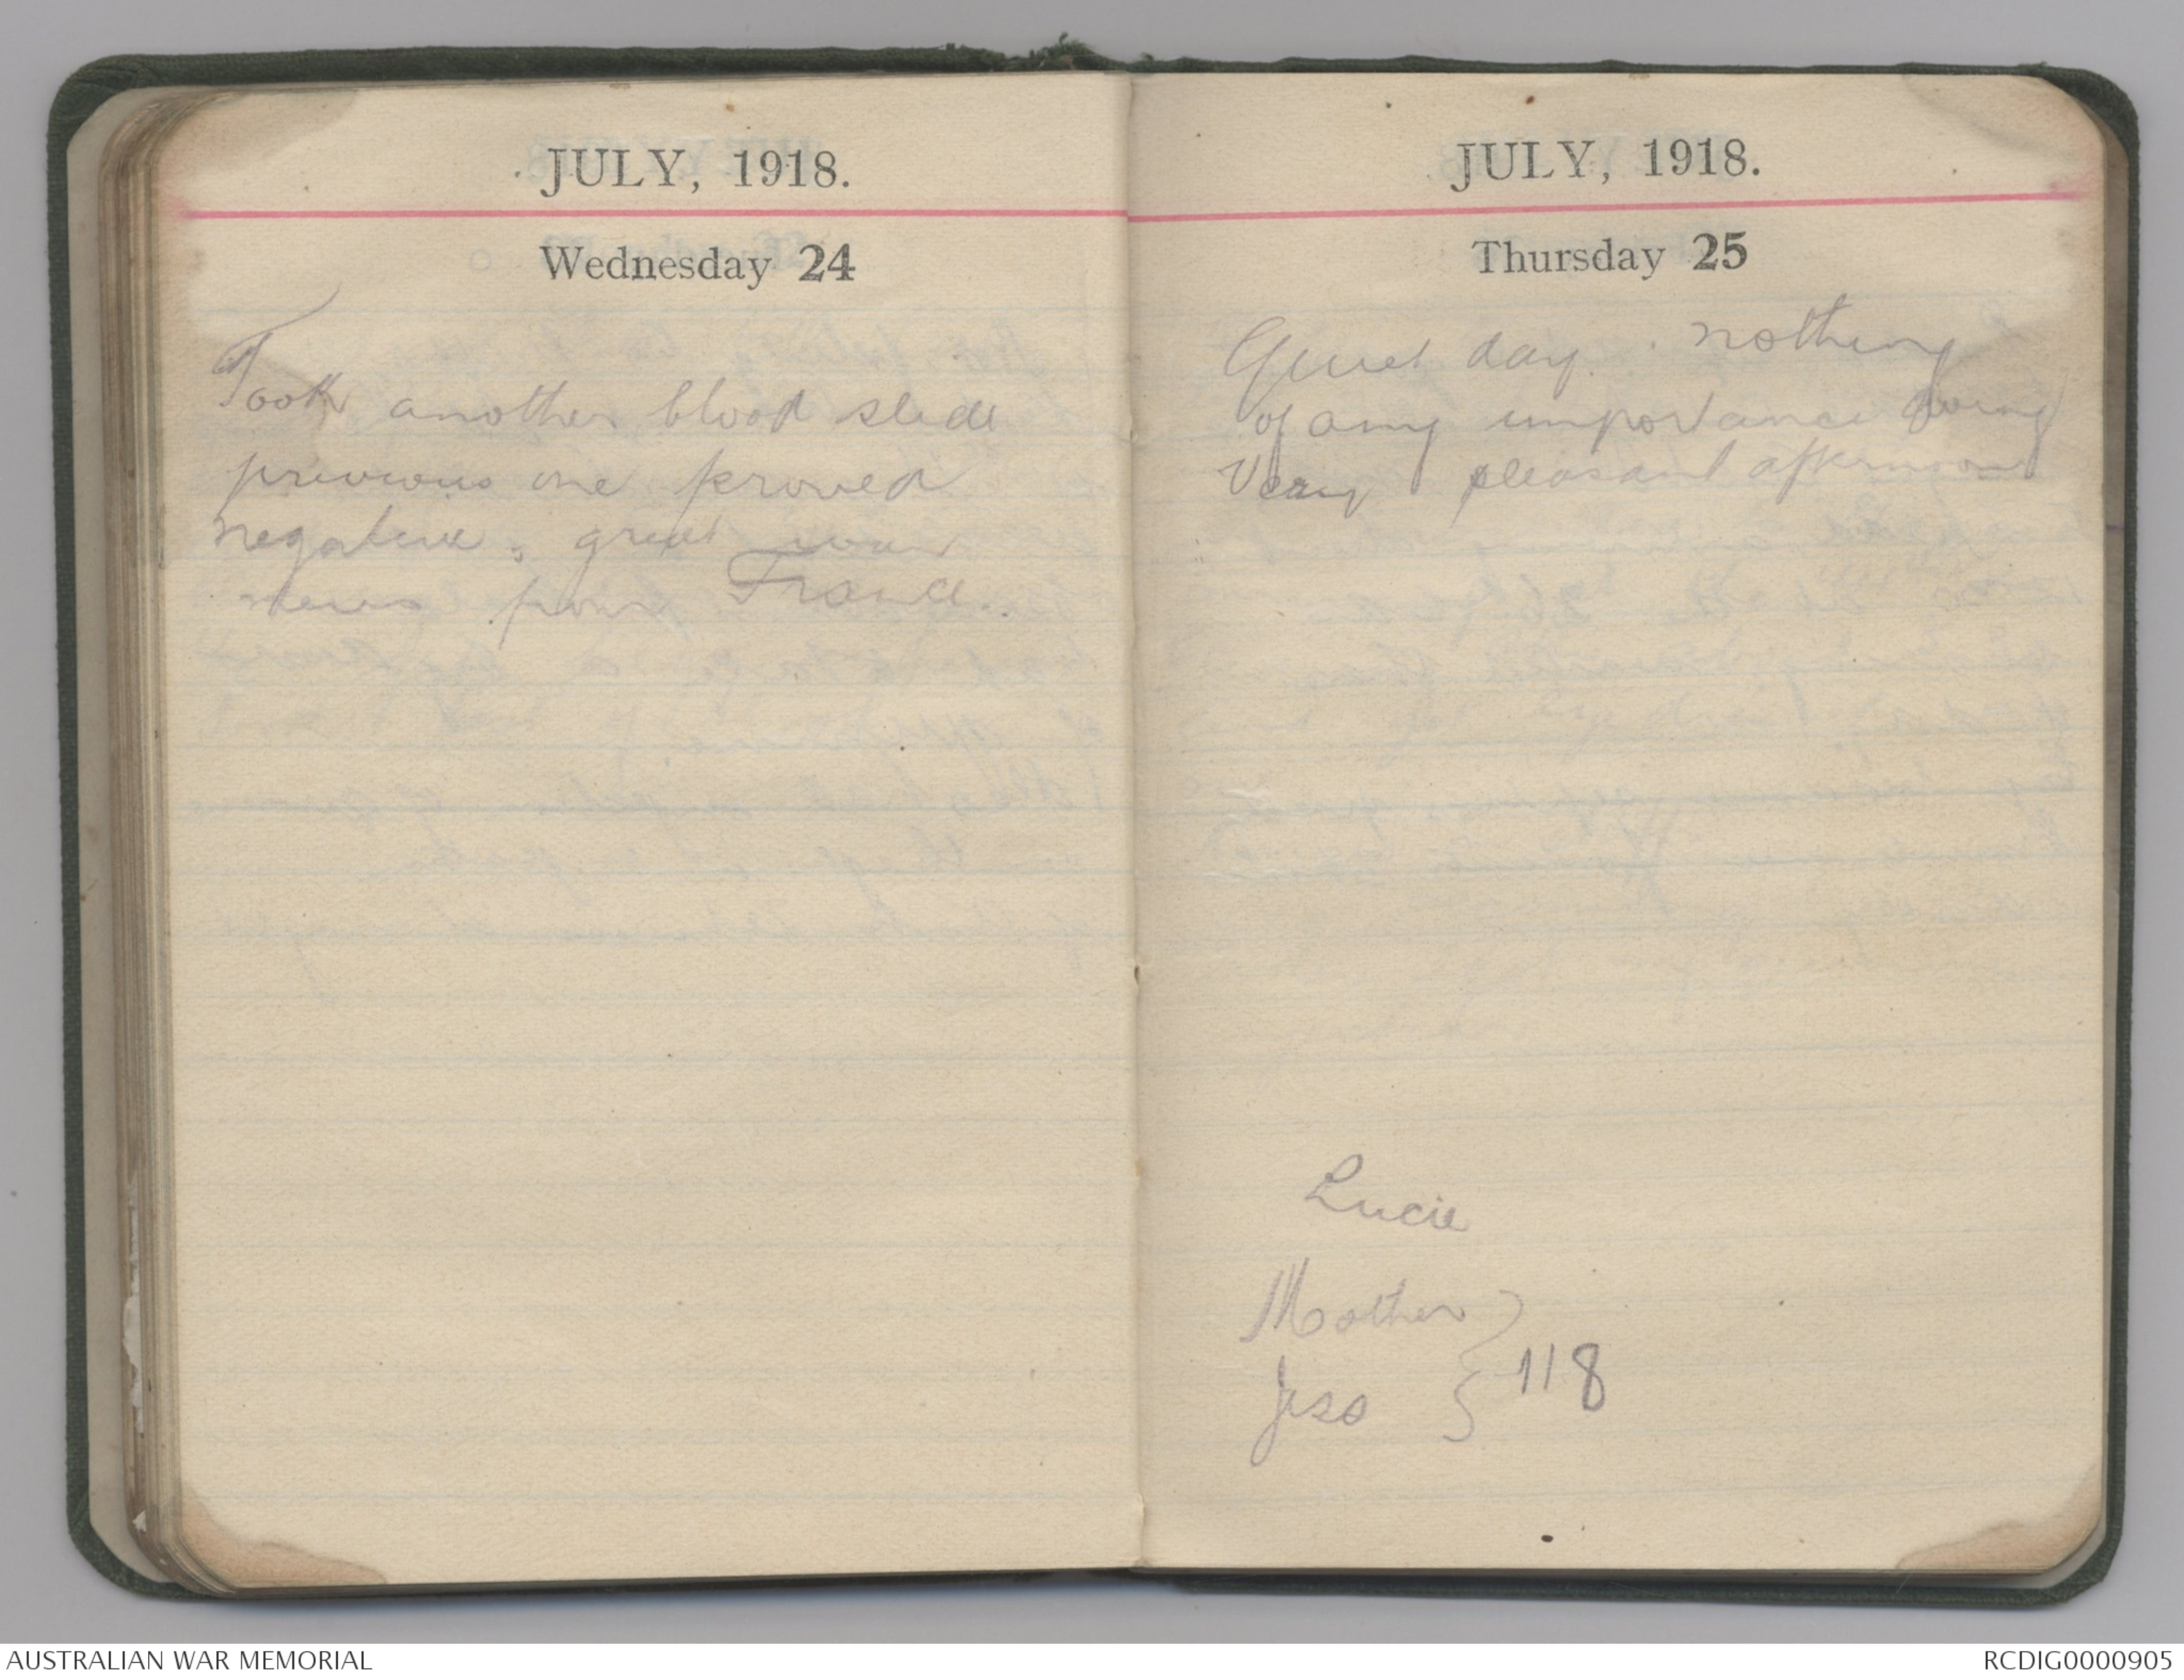 JULY, 1918.
Wednesday 24
Took another blood slide
previous one proved
negative, great war
news from France.
JULY, 1918.
Thursday 25
Quiet day. nothing
of any importance doing
Very pleasant afternoon
Lucie
Mother
Jess } 118
AUSTRALIAN WAR MEMORIAL
RCDIG0000905